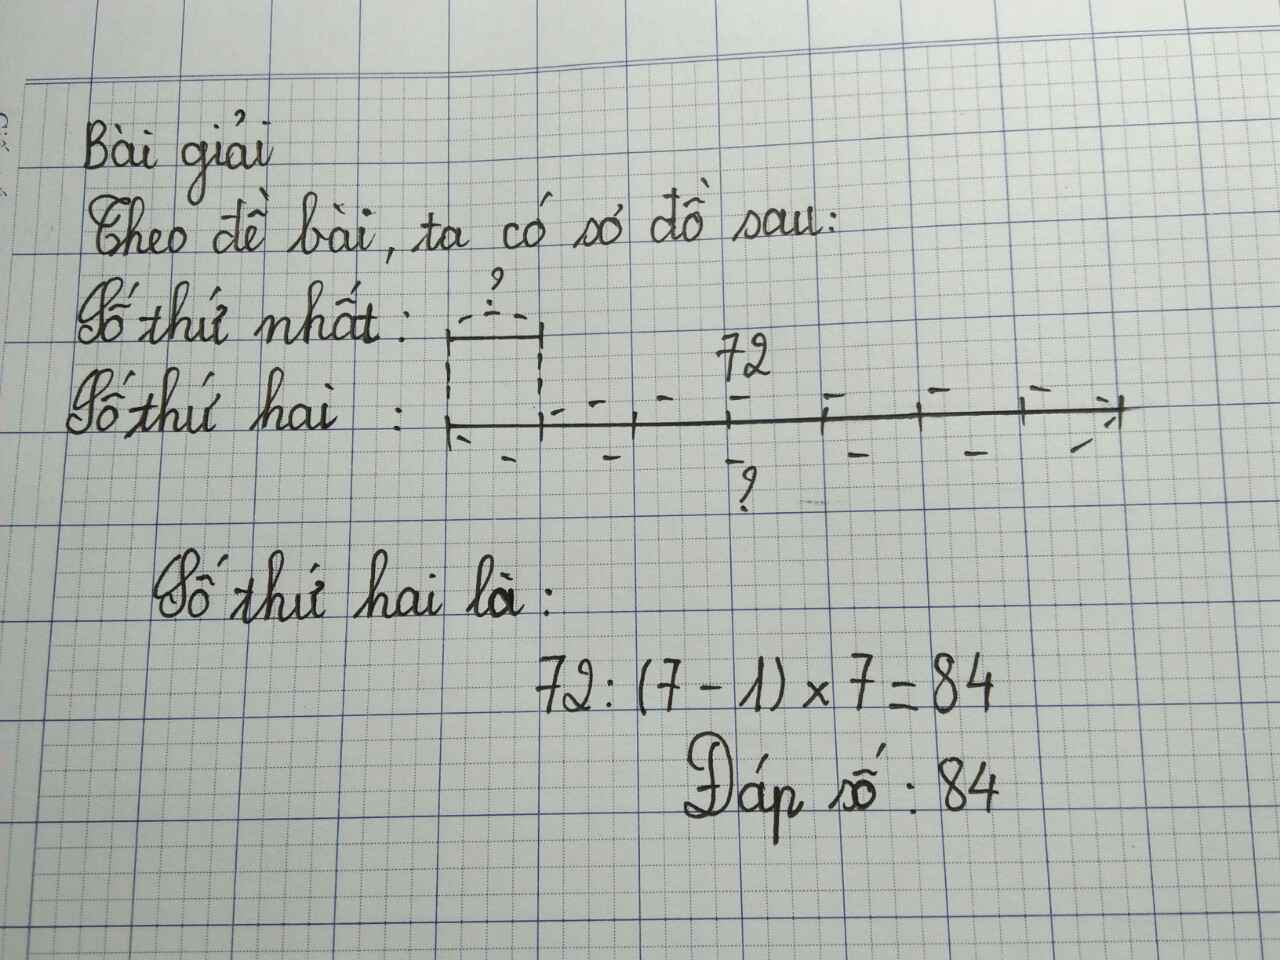 Bài giải
Theo đề bài, ta có sơ đồ sau:
?
Số thứ nhất:
72
Số thứ hai :
?
Số thứ hai là:
72: (7 - 1) x 7 = 84
Đáp số: 84